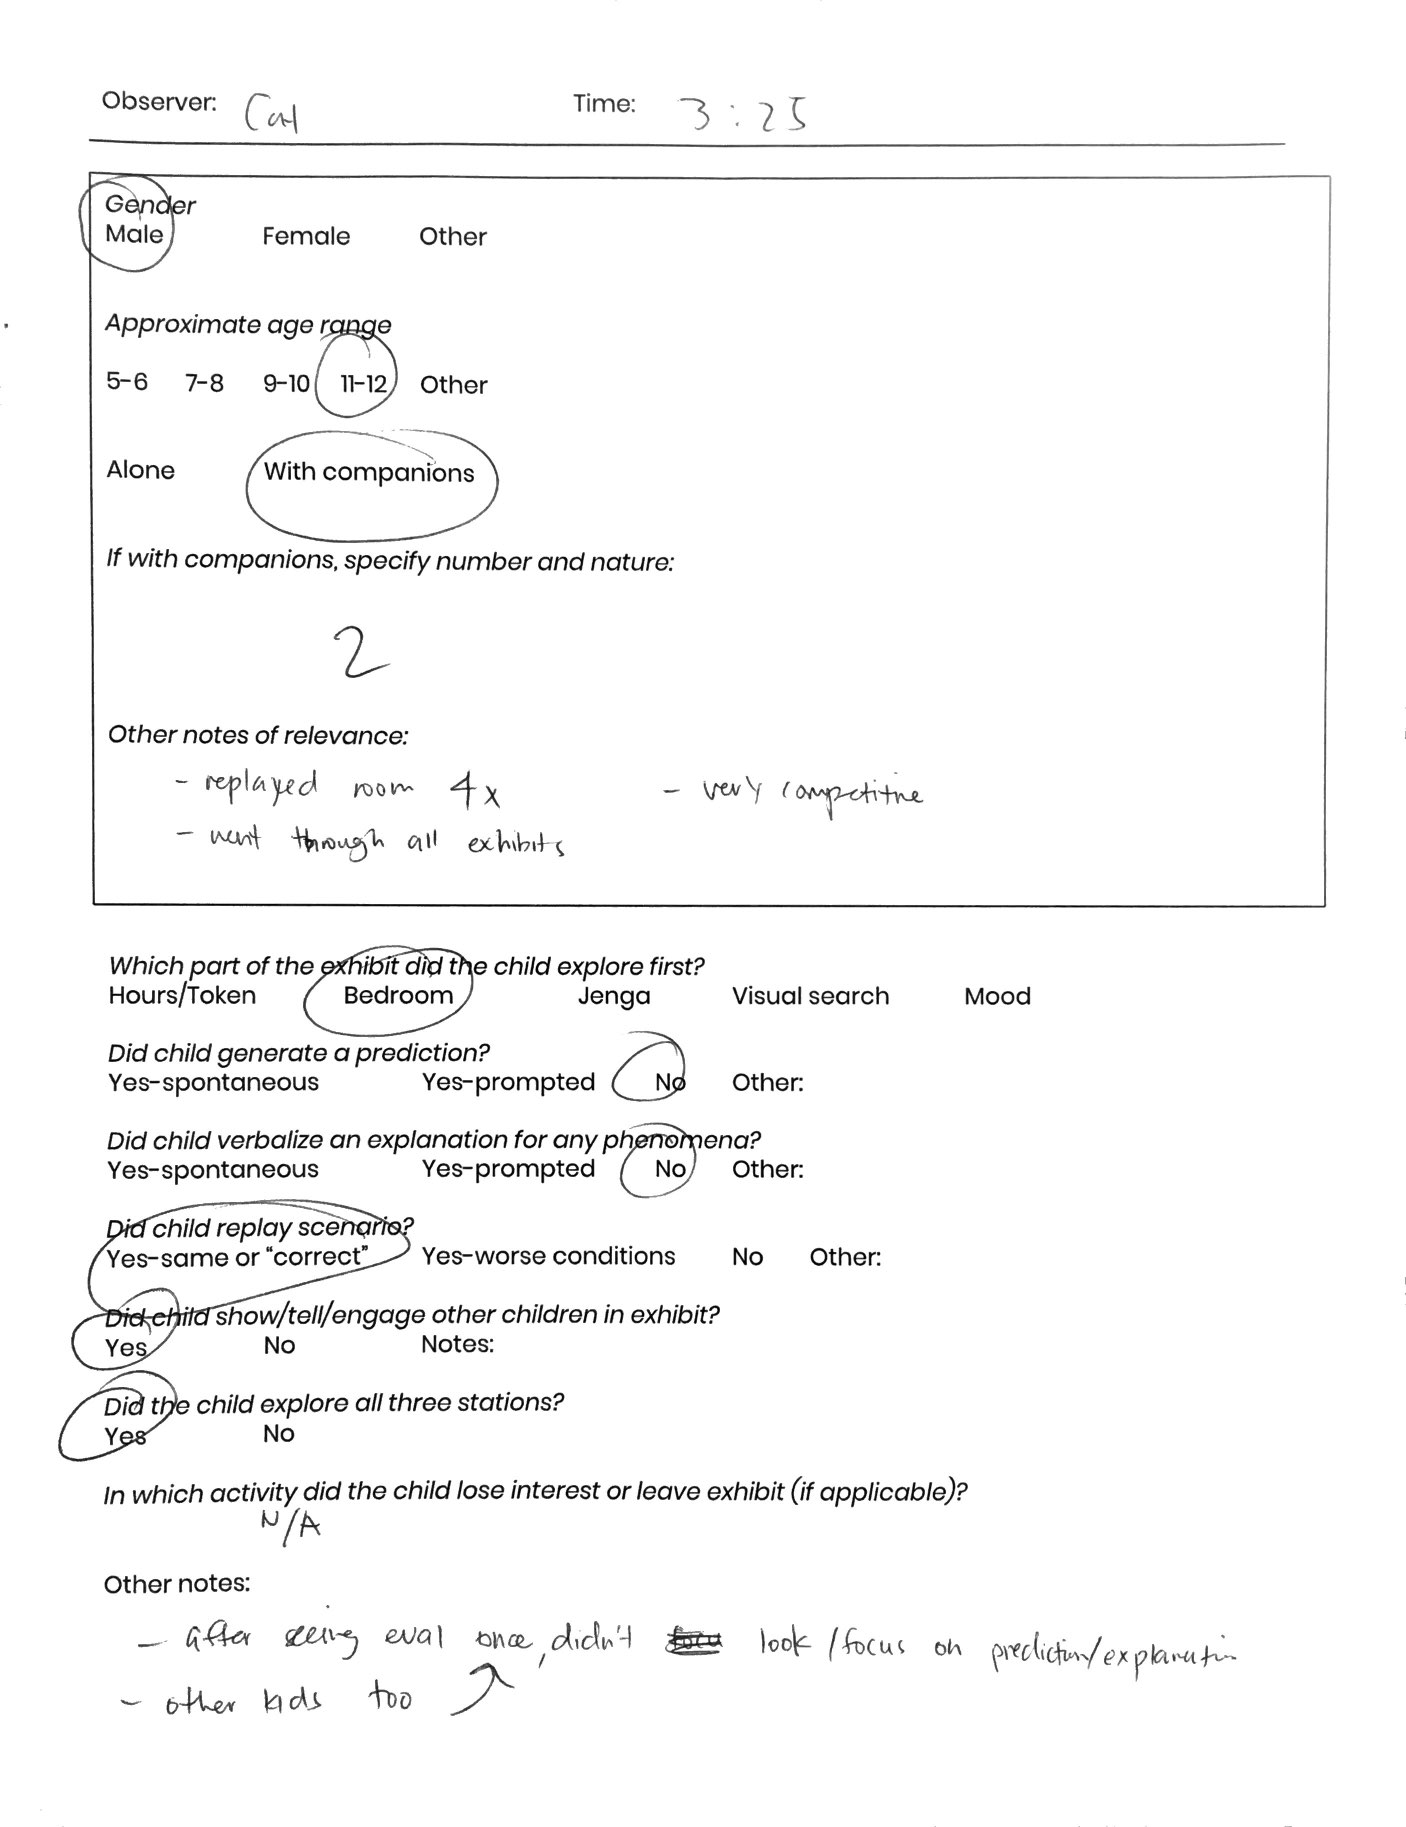 Observer: Cal Time: 3:25
Gender
Male Female Other
Approximate age range
5-6 7-8 9-10 11-12 Other
Alone With companions
If with companions, specify number and nature:
2
Other notes of relevance:
- replayed room 4x - very competitive
- went through all exhibits
Which part of the exhibit did the child explore first?
Hours/Token Bedroom Jenga Visual search Mood
Did child generate a prediction?
Yes-spontaneous Yes-prompted No Other:
Did child verbalize an explanation for any phenomena?
Yes-spontaneous Yes-prompted No Other:
Did child replay scenario?
Yes-same or "correct" Yes-worse conditions No Other:
Did child show/tell/engage other children in exhibit?
Yes No Notes:
Did the child explore all three stations?
Yes No
In which activity did the child lose interest or leave exhibit (if applicable)?
N/A
Other notes:
- after seeing eval once, didn't look/focus on prediction/explanation
- other kids too